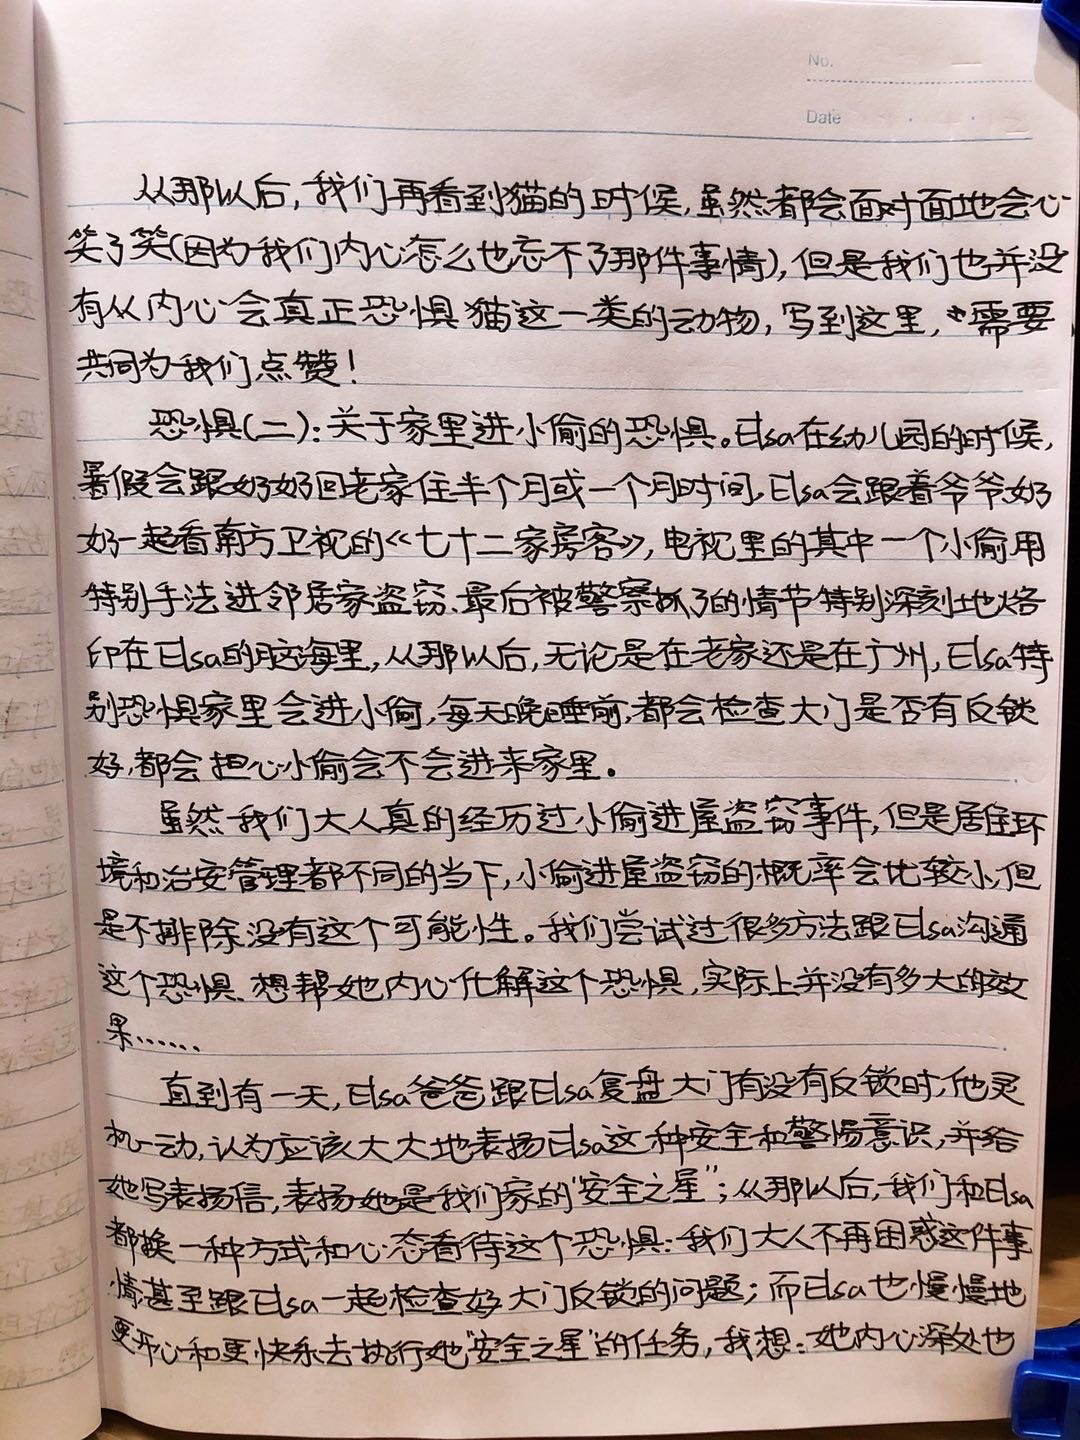 No.
Date
从那以后,我们再看到猫的时候,虽然都会面对面地会心
笑了笑(因为我们内心怎么也忘不了那件事情),但是我们也并没
有从内心会真正恐惧猫这一类的动物,写到这里,需要
共同为我们点赞!
恐惧(二):关于家里进小偷的恐惧。Elsa在幼儿园的时候,
暑假会跟奶奶回老家住半个月或一个月时间,Elsa会跟着爷爷奶
奶一起看南方卫视的《七十二家房客》,电视里的其中一个小偷用
特别手法进邻居家盗窃、最后被警察抓了的情节特别深刻地烙
印在Elsa的脑海里,从那以后,无论是在老家还是在广州,Elsa特
别恐惧家里会进小偷,每天晚睡前,都会检查大门是否有反锁
好,都会担心小偷会不会进来家里。
虽然我们大人真的经历过小偷进屋盗窃事件,但是居住环
境和治安管理都不同的当下,小偷进屋盗窃的概率会比较小,但
是不排除没有这个可能性。我们尝试过很多方法跟Elsa沟通
这个恐惧、想帮她内心化解这个恐惧,实际上并没有多大的效
果……
直到有一天,Elsa爸爸跟Elsa复盘大门有没有反锁时,他灵
机一动,认为应该大大地表扬Elsa这种安全和警惕意识,并给
她写表扬信,表扬她是我们家的"安全之星";从那以后,我们和Elsa
都换一种方式和心态看待这个恐惧:我们大人不再困惑这件事
情甚至跟Elsa一起检查好大门反锁的问题;而Elsa也慢慢地
更开心和更快乐去执行她"安全之星"的任务,我想:她内心深处也